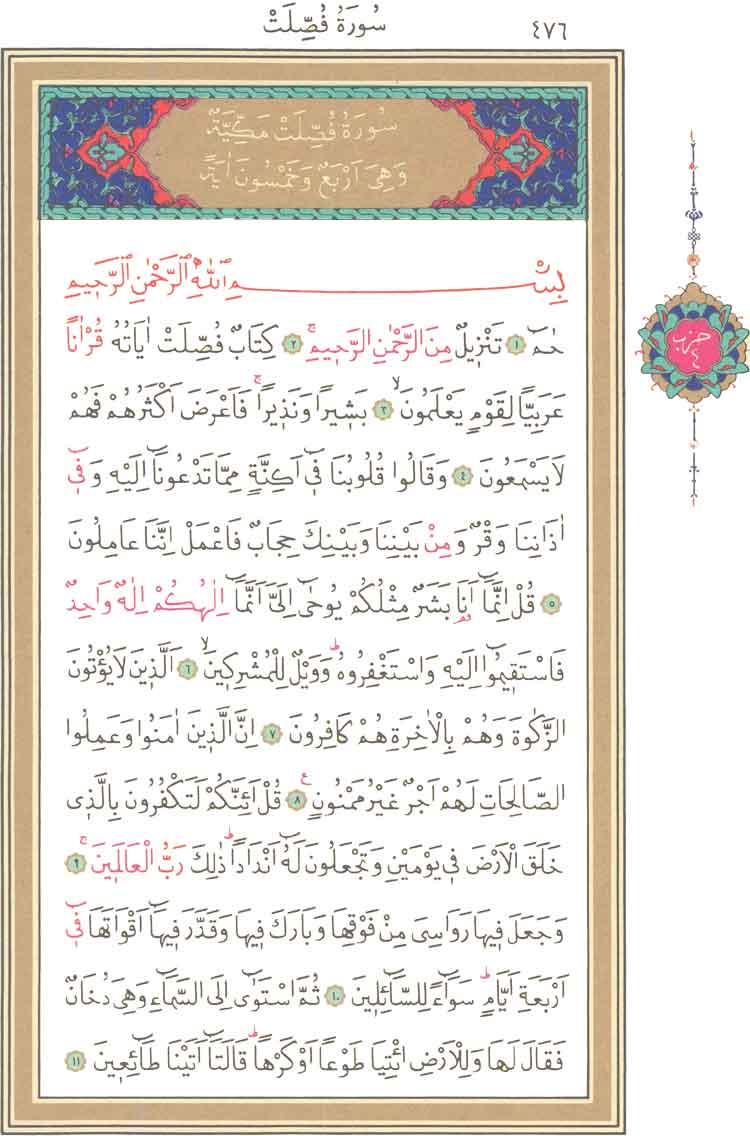 سُورَةُ فُصِّلَتْ
٤٧٦
سُورَةُ فُصِّلَتْ مَكِّيَّةٌ
وَهِىَ اَرْبَعٌ وَخَمْسُونَ اٰيَةً
بِسْمِ اللّٰهِ الرَّحْمٰنِ الرَّحٖيمِ
حٰمٓ ١ تَنْزٖيلٌ مِنَ الرَّحْمٰنِ الرَّحٖيمِۚ ٢ كِتَابٌ فُصِّلَتْ اٰيَاتُهُ قُرْاٰناً
عَرَبِيًّا لِقَوْمٍ يَعْلَمُونَۙ ٣ بَشٖيراً وَنَذٖيراًۚ فَاَعْرَضَ اَكْثَرُهُمْ فَهُمْ
لَا يَسْمَعُونَ ٤ وَقَالُوا قُلُوبُنَا فٖٓى اَكِنَّةٍ مِمَّا تَدْعُونَٓا اِلَيْهِ وَفٖٓى
اٰذَانِنَا وَقْرٌ وَمِنْ بَيْنِنَا وَبَيْنِكَ حِجَابٌ فَاعْمَلْ اِنَّنَا عَامِلُونَ
٥ قُلْ اِنَّمَٓا اَنَا۬ بَشَرٌ مِثْلُكُمْ يُوحٰٓى اِلَىَّ اَنَّمَٓا اِلٰهُكُمْ اِلٰهٌ وَاحِدٌ
فَاسْتَقٖيمُٓوا اِلَيْهِ وَاسْتَغْفِرُوهُؕ وَوَيْلٌ لِلْمُشْرِكٖينَۙ ٦ اَلَّذٖينَ لَا يُؤْتُونَ
الزَّكٰوةَ وَهُمْ بِالْاٰخِرَةِ هُمْ كَافِرُونَ ٧ اِنَّ الَّذٖينَ اٰمَنُوا وَعَمِلُوا
الصَّالِحَاتِ لَهُمْ اَجْرٌ غَيْرُ مَمْنُونٍع ٨ قُلْ اَئِنَّكُمْ لَتَكْفُرُونَ بِالَّذٖى
خَلَقَ الْاَرْضَ فٖى يَوْمَيْنِ وَتَجْعَلُونَ لَهُٓ اَنْدَاداًؕ ذٰلِكَ رَبُّ الْعَالَمٖينَۚ ٩
وَجَعَلَ فٖيهَا رَوَاسِىَ مِنْ فَوْقِهَا وَبَارَكَ فٖيهَا وَقَدَّرَ فٖيهَٓا اَقْوَاتَهَا فٖٓى
اَرْبَعَةِ اَيَّامٍؕ سَوَٓاءً لِلسَّٓائِلٖينَ ١٠ ثُمَّ اسْتَوٰٓى اِلَى السَّمَٓاءِ وَهِىَ دُخَانٌ
فَقَالَ لَهَا وَلِلْاَرْضِ ائْتِيَا طَوْعاً اَوْ كَرْهاًؕ قَالَتَٓا اَتَيْنَا طَٓائِعٖينَ ١١
حزب
٤